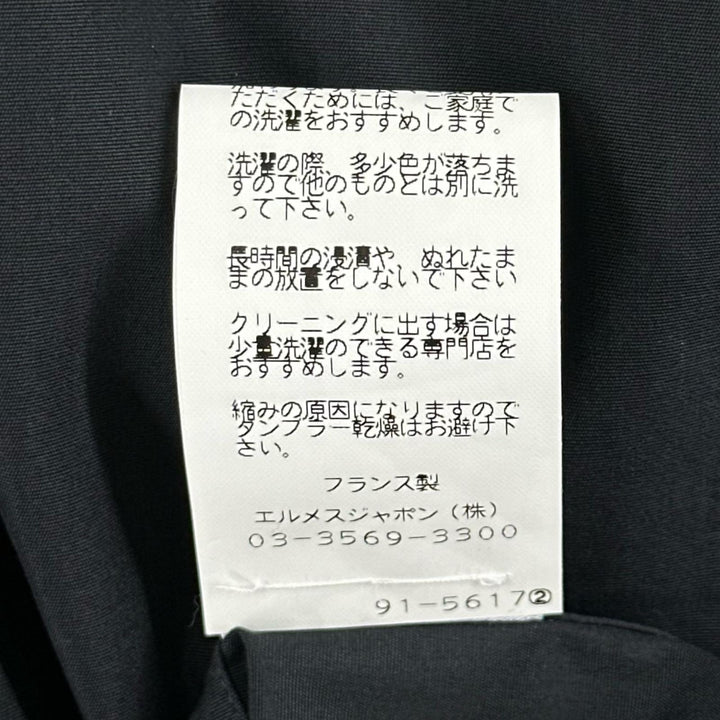 ただくためには、ご家庭で
の洗濯をおすすめします。
洗濯の際、多少色が落ちま
すので他のものとは別に洗
って下さい。
長時間の浸漬や、ぬれたま
まの放置をしないで下さい
クリーニングに出す場合は
少量洗濯のできる専門店を
おすすめします。
縮みの原因になりますので
タンブラー乾燥はお避け下
さい。
フランス製
エルメスジャポン(株)
03-3569-3300
91-5617②